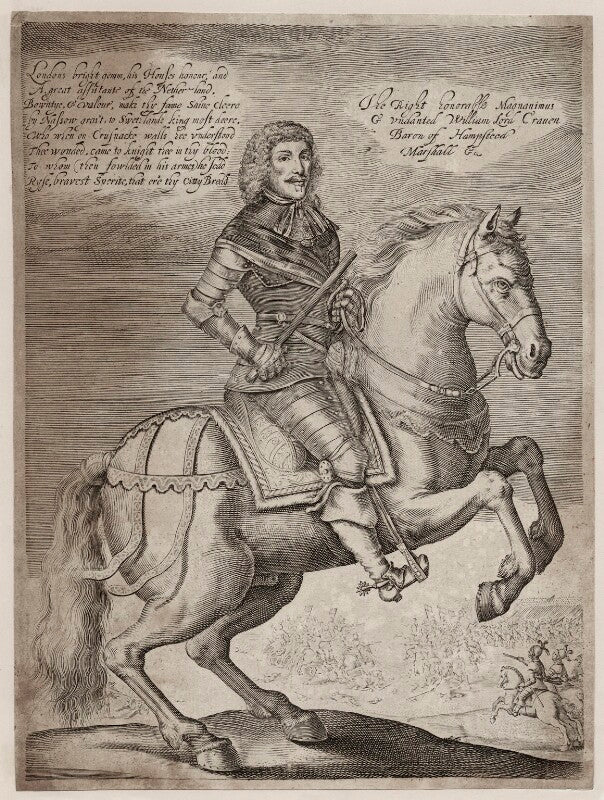 Londons bright gemm, his Houses honour, and
A great assistante of the Nether-land,
Bountye, & Valour, make thy fame Shine cleere
by Nassow grac't, to Swethlands king most deere,
Who when on Crusnacks walls
The wounded, came to knight thee in thy blood:
To whom (then fowlded in his armes) he said
Ryse, bravest Sperite, that ere thy Citty Bread
The Right honorable Magnanimus
& vndanted William Lord Crauen
Baron of Hampsteed
Marshall